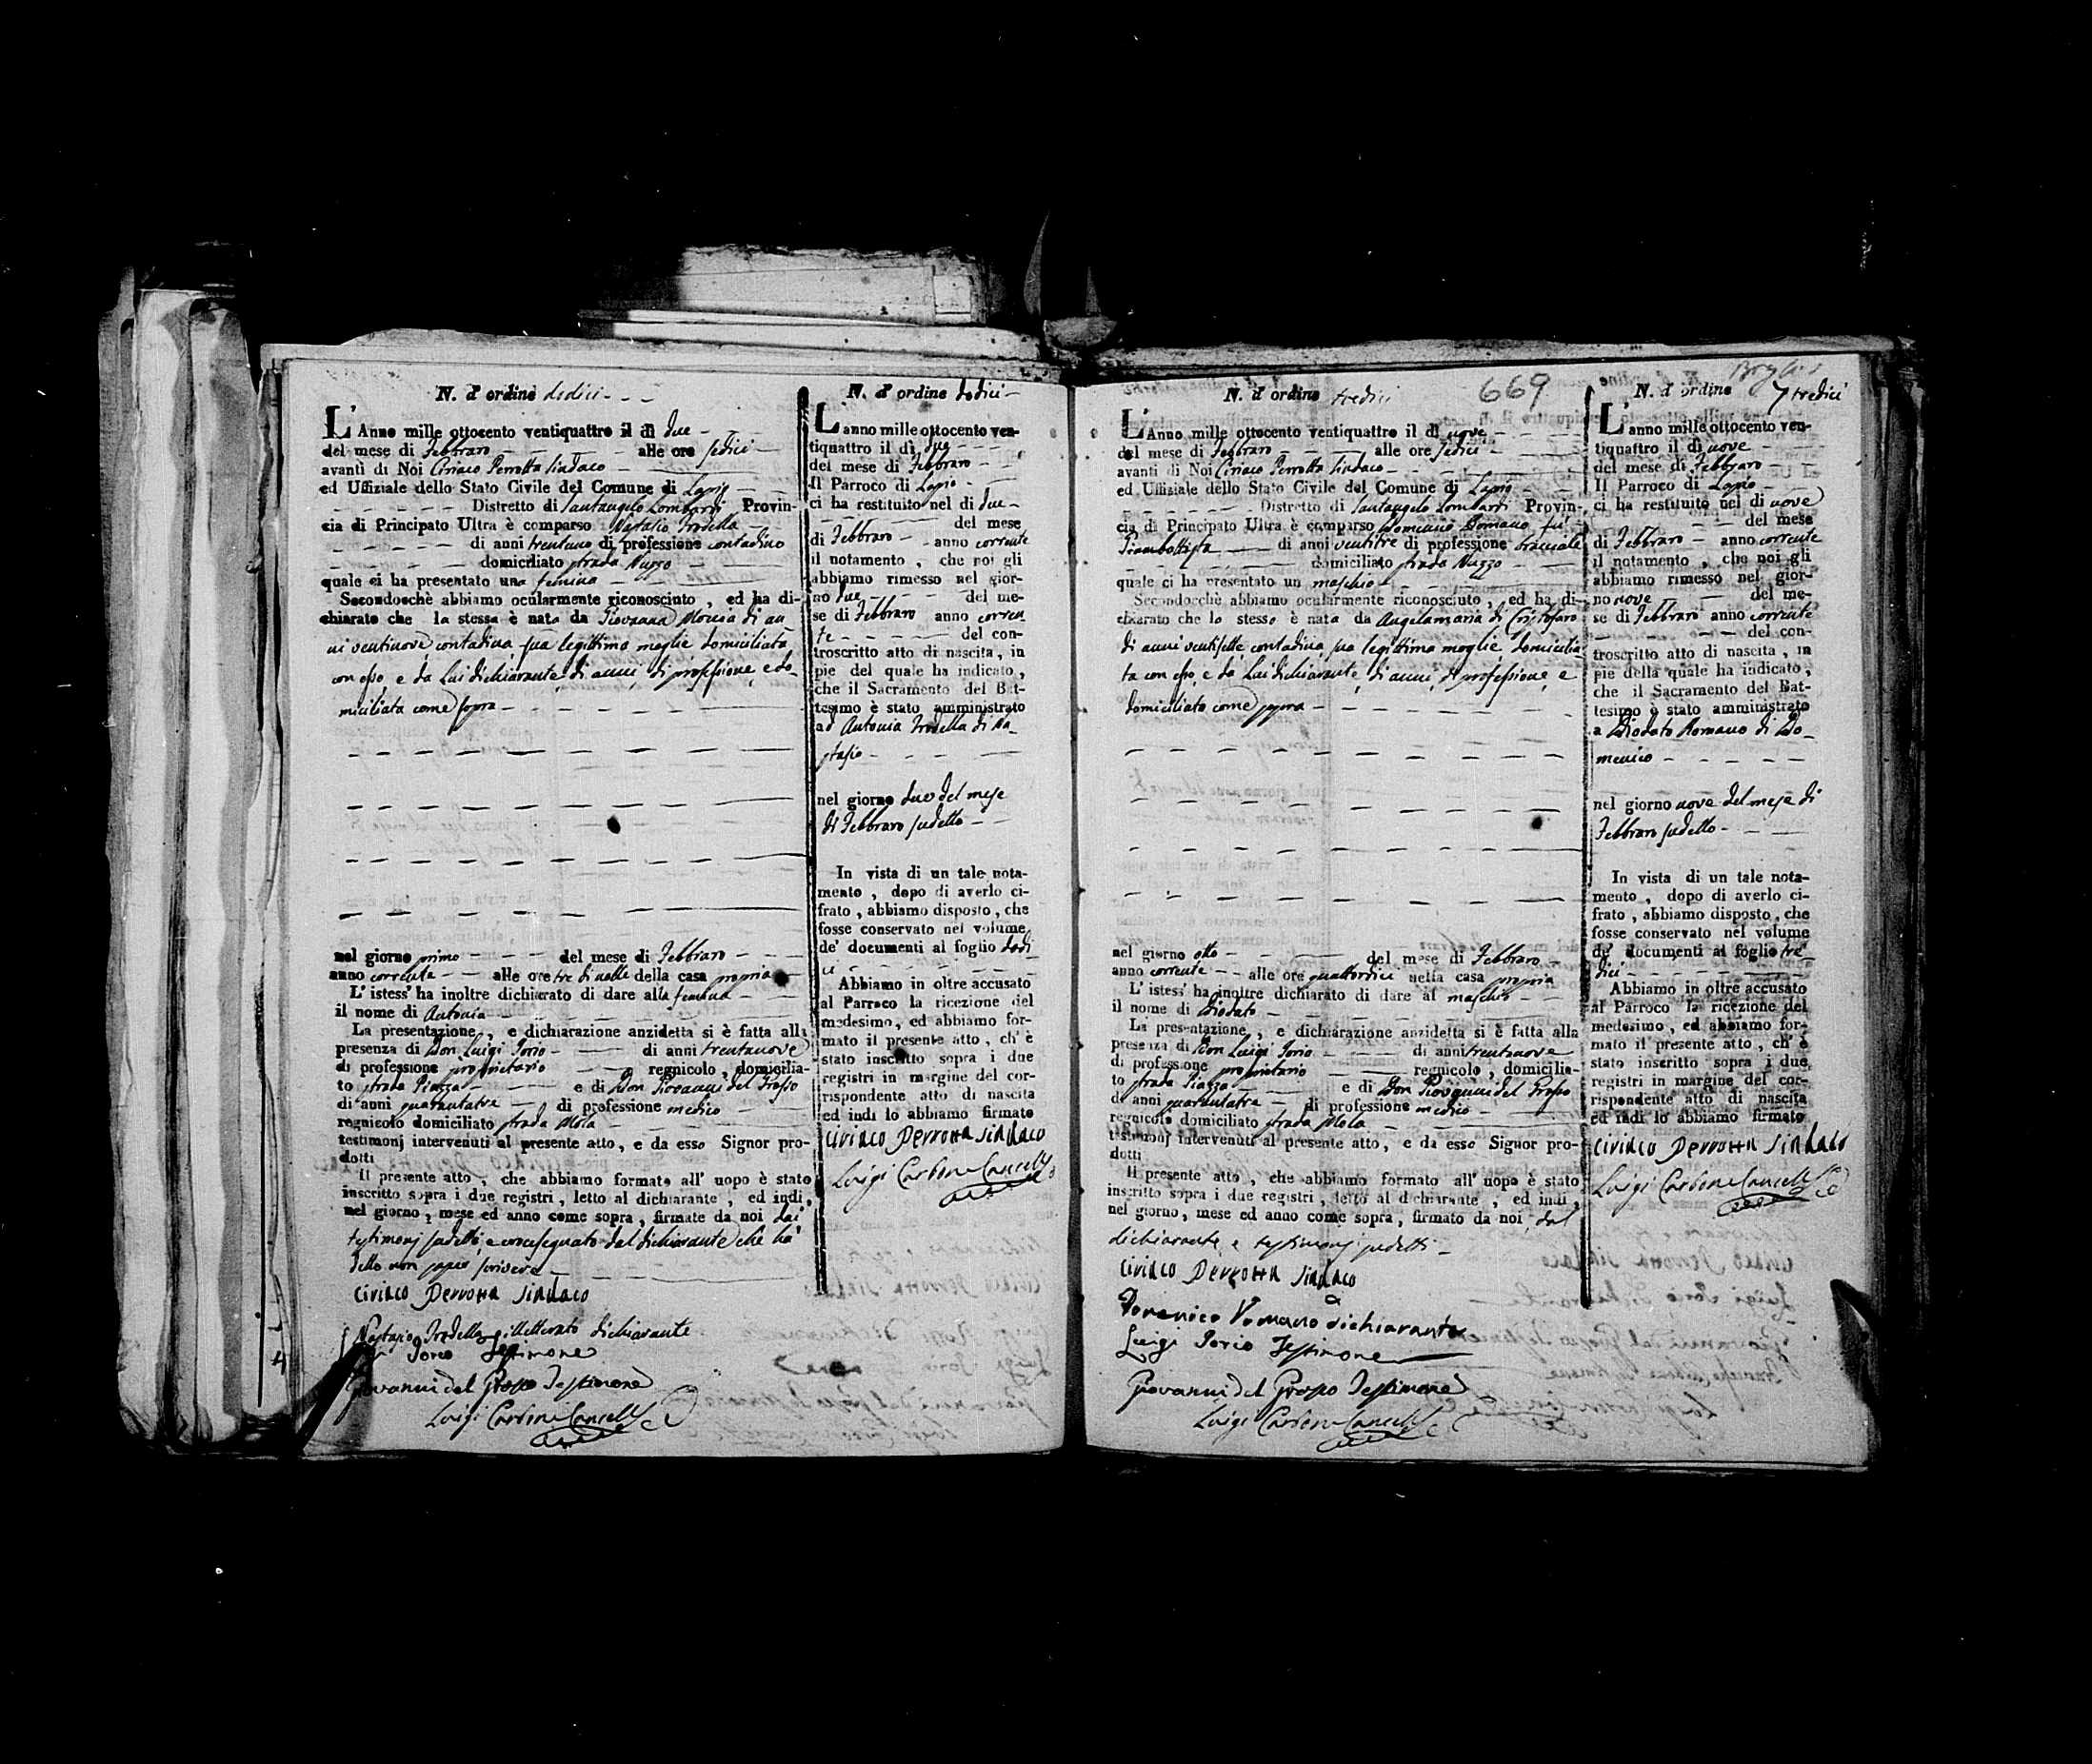 N. d'ordine dodici
L'Anno mille ottocento ventiquattro il dì due
del mese di Febbraro alle ore sedici
avanti di Noi Ciriaco Perrotta Sindaco
ed Uffiziale dello Stato Civile del Comune di Lapio
Distretto di Santangelo Lombardi Provin-
cia di Principato Ultra è comparso Nastasio Trodella
di anni trentuno di professione contadino
domiciliato strada Nuzzo
quale ci ha presentato una femina
Secondocchè abbiamo ocularmente riconosciuto, ed ha di-
chiarato che la stessa è nata da Giovanna Morsia di an
ni ventinove contadina sua legittima moglie domiciliata
con esso e da Lui dichiarante di anni, di professione, e do-
miciliata come sopra
nel giorno primo del mese di Febbraro
anno corrente alle ore tre di notte della casa propria
L'istess' ha inoltre dichiarato di dare alla femina
il nome di Antonia
La presentazione, e dichiarazione anzidetta si è fatta alla
presenza di Don Luigi Iorio di anni trentanove
di professione proprietario regnicolo, domicilia-
to strada Piazza e di Don Giovanni del Grosso
di anni quarantatre di professione medico
regnicolo domiciliato strada Mola
testimonj intervenuti al presente atto, e da esso Signor pro-
dotti
Il presente atto, che abbiamo formato all' uopo è stato
inscritto sopra i due registri, letto al dichiarante, ed indi,
nel giorno, mese ed anno come sopra, firmato da noi dai
testimonj sudetti, e crocesegnato dal dichiarante che ha
detto non saper scrivere
Ciriaco Perrotta Sindaco
Nastasio Trodella illetterato dichiarante
Iorio Testimone
Giovanni del Grosso Testimone
Luigi Carbone Cancell
N. d'ordine dodici
L'anno mille ottocento ven-
tiquattro il dì due
del mese di Febbraro
Il Parroco di Lapio
ci ha restituito nel dì due
del mese
di Febbraro anno corrente
il notamento, che noi gli
abbiamo rimesso nel gior-
no due del me-
se di Febbraro anno corren
te del con-
troscritto atto di nascita, in
pie del quale ha indicato,
che il Sacramento del Bat-
tesimo è stato amministrato
ad Antonia Trodella di Na-
stasio
nel giorno due del mese
di Febbraro sudetto
In vista di un tale nota-
mento, dopo di averlo ci-
frato, abbiamo disposto, che
fosse conservato nel volume
de' documenti al foglio dodi
ci
Abbiamo in oltre accusato
al Parroco la ricezione del
medesimo, ed abbiamo for-
mato il presente atto, ch' è
stato inscritto sopra i due
registri in margine del cor-
rispondente atto di nascita
ed indi lo abbiamo firmato
Ciriaco Perrotta Sindaco
Luigi Carbone Cancell
N. d'ordine tredici
669
L'Anno mille ottocento ventiquattro il dì nove
del mese di Febbraro alle ore sedici
avanti di Noi Ciriaco Perrotta Sindaco
ed Uffiziale dello Stato Civile del Comune di Lapio
Distretto di Santangelo Lombardi Provin-
cia di Principato Ultra è comparso Domenico Romano fu
Giambattista di anni ventitre di professione bracciale
domiciliato strada Nuzzo
quale ci ha presentato un maschio
Secondocchè abbiamo ocularmente riconosciuto, ed ha di-
chiarato che lo stesso è nata da Angelamaria di Cristofaro
di anni ventisette contadina sua legittima moglie domicilia
ta con esso, e da Lui dichiarante, di anni, di professione, e
domiciliato come sopra
nel giorno otto del mese di Febbraro
anno corrente alle ore quattordici nella casa propria
L'istess' ha inoltre dichiarato di dare al maschio
il nome di Diodato
La presentazione, e dichiarazione anzidetta si è fatta alla
presenza di Don Luigi Iorio di anni trentanove
di professione proprietario regnicolo, domicilia-
to strada Piazza e di Don Giovanni del Grosso
di anni quarantatre di professione medico
regnicolo domiciliato strada Mola
testimonj intervenuti al presente atto, e da esso Signor pro-
dotti
Il presente atto, che abbiamo formato all' uopo è stato
inscritto sopra i due registri, letto al dichiarante, ed indi,
nel giorno, mese ed anno come sopra, firmato da noi dal
dichiarante e testimonj sudetti
Ciriaco Perrotta Sindaco
Domenico Romano dichiarante
Luigi Iorio Testimone
Giovanni del Grosso Testimone
Luigi Carbone Cancell
N. d'ordine tredici
7
L'anno mille ottocento ven-
tiquattro il dì nove
del mese di Febbraro
Il Parroco di Lapio
ci ha restituito nel dì nove
del mese
di Febbraro anno corrente
il notamento, che noi gli
abbiamo rimesso nel gior-
no nove del me-
se di Febbraro anno corrente
del con-
troscritto atto di nascita, in
pie della quale ha indicato,
che il Sacramento del Bat-
tesimo è stato amministrato
a Diodato Romano di Do-
menico
nel giorno nove del mese di
Febbraro sudetto
In vista di un tale nota-
mento, dopo di averlo ci-
frato, abbiamo disposto, che
fosse conservato nel volume
de' documenti al foglio tre-
dici
Abbiamo in oltre accusato
al Parroco la ricezione del
medesimo, ed abbiamo for-
mato il presente atto, ch' è
stato inscritto sopra i due
registri in margine del cor-
rispondente atto di nascita
ed indi lo abbiamo firmato
Ciriaco Perrotta Sindaco
Luigi Carbone Cancell